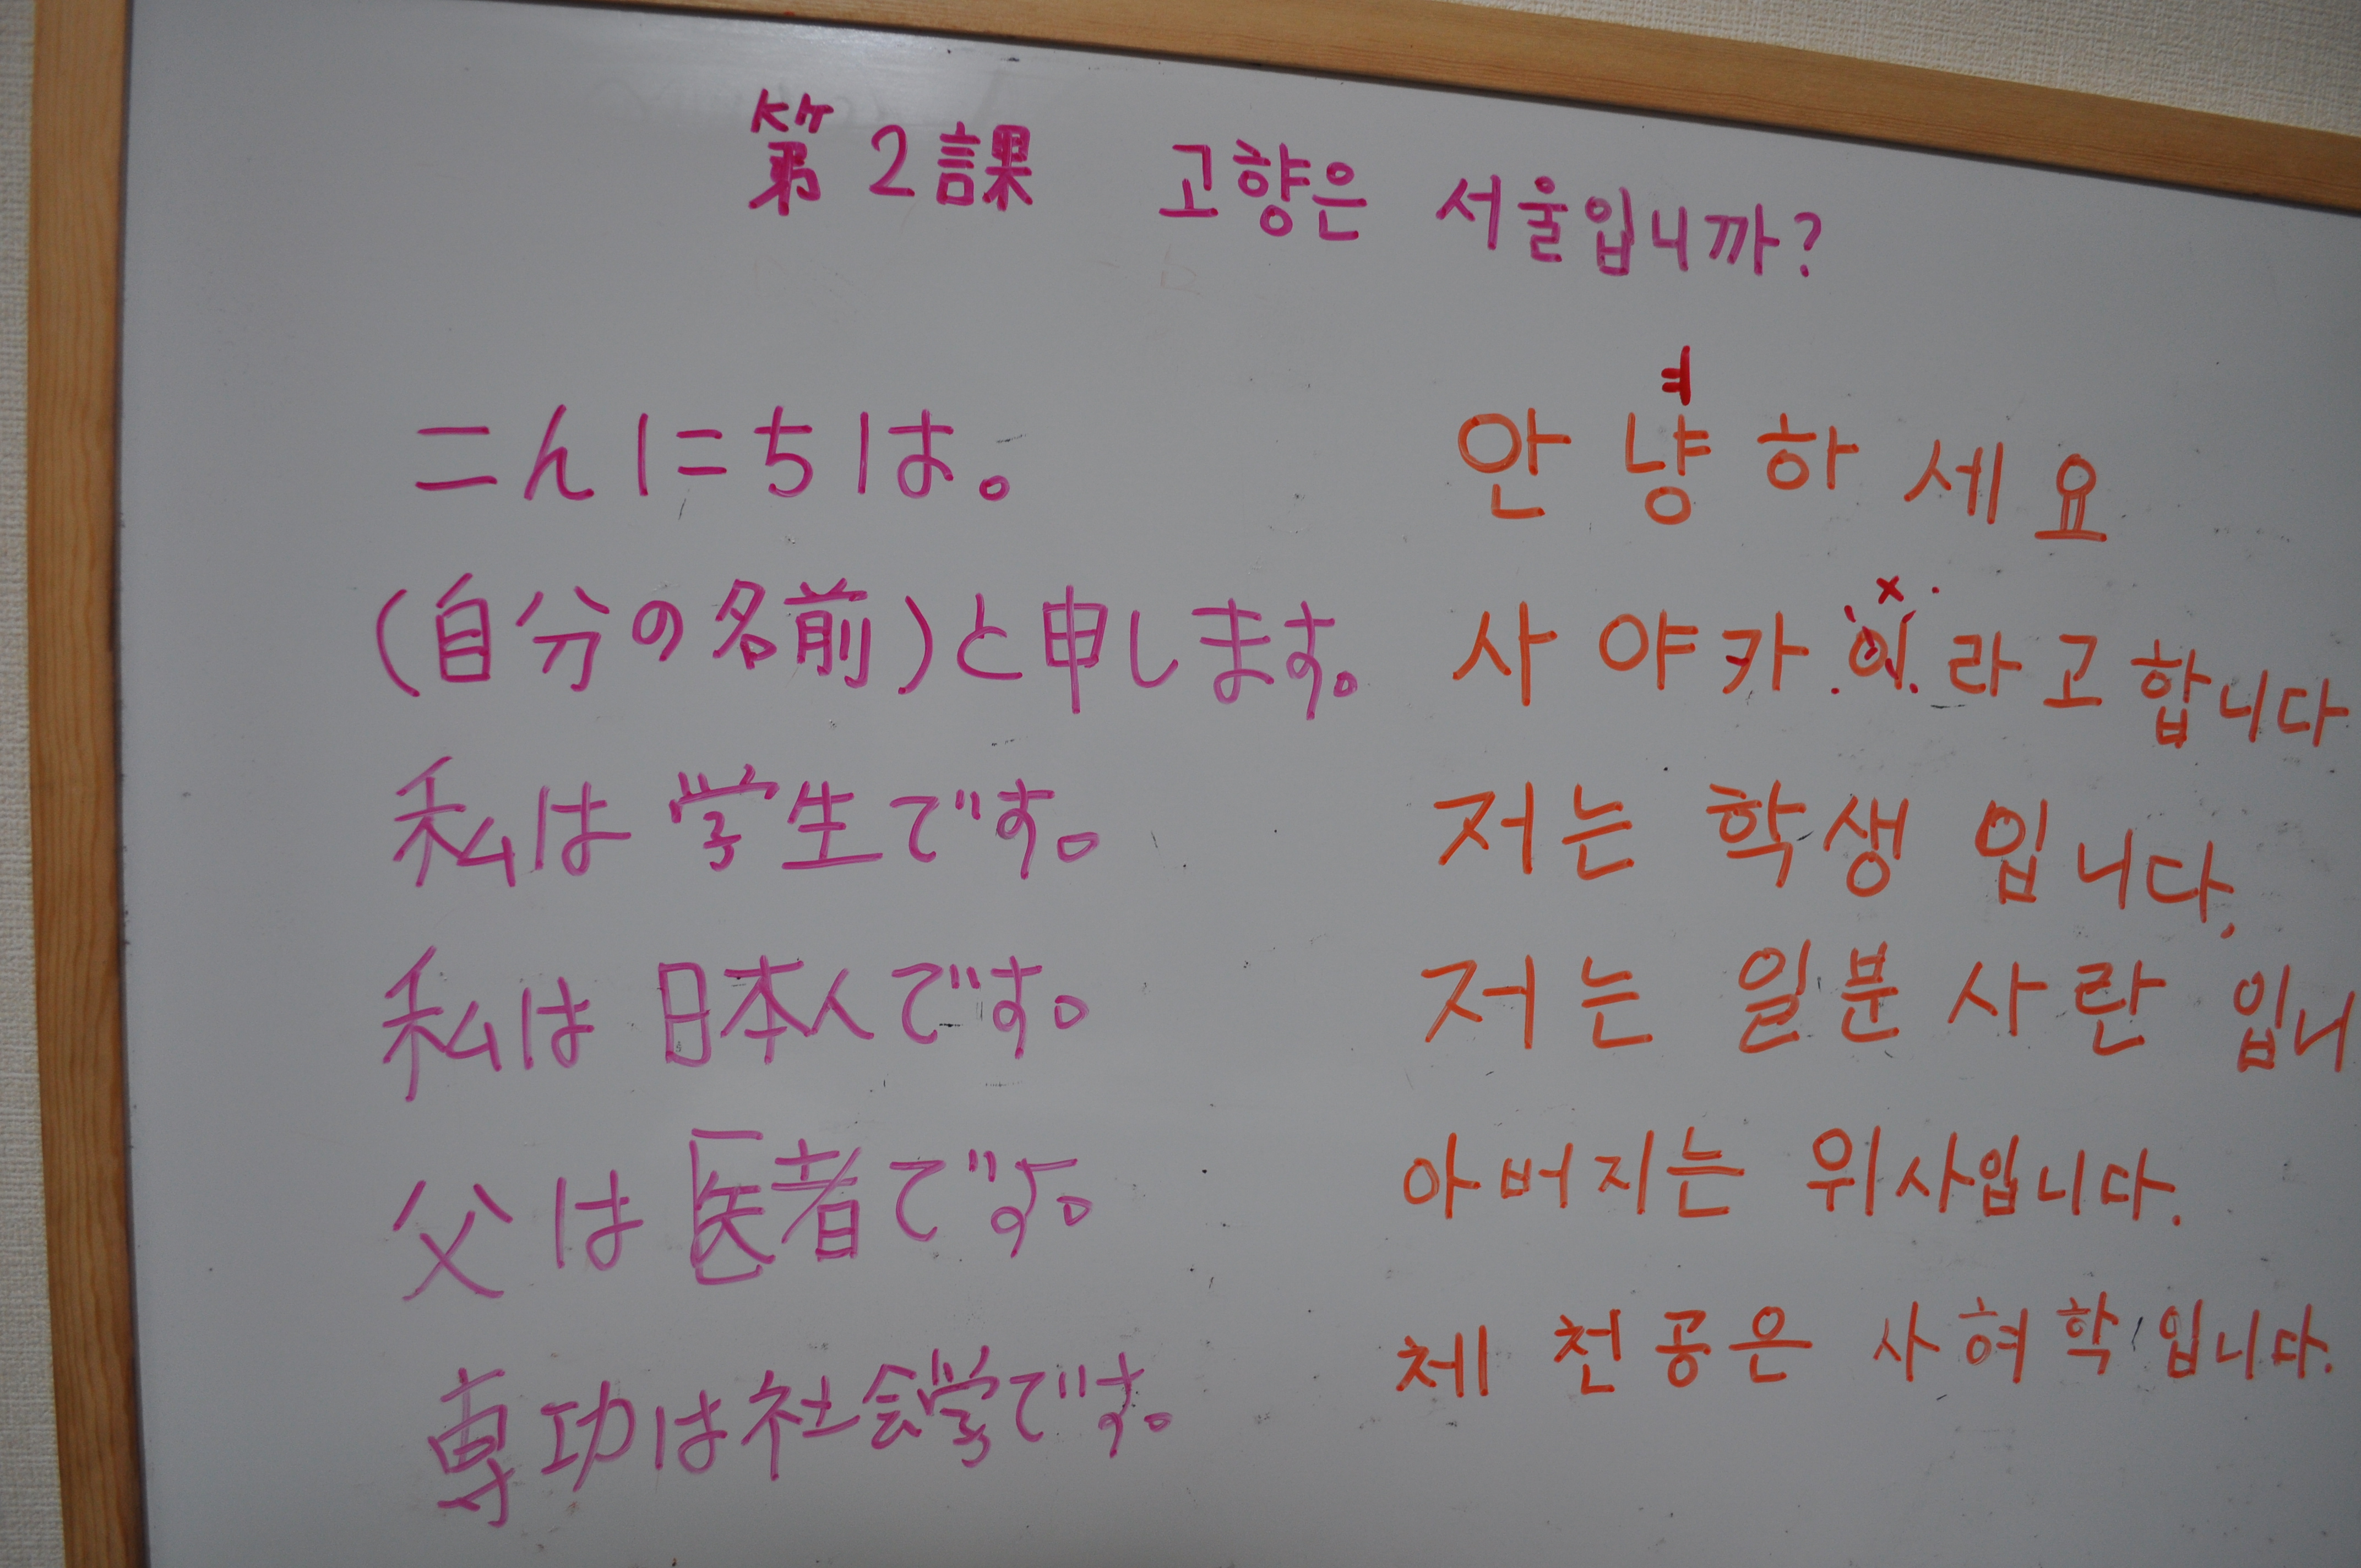 第2課 고향은 서울입니까?
こんにちは。 안냥하세요
ㅕ
(自分の名前)と申します。 사야카이라고합니다
x
私は学生です。 저는 학생 입니다.
私は日本人です。 저는 일분사란 입니
父は医者です。 아버지는 위사입니다.
専功は社会学です。 체 천공은 사혀학입니다.